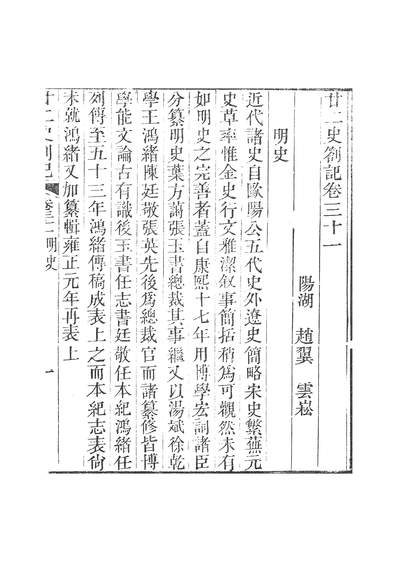 廿二史劄記卷三十一
陽湖 趙翼 雲崧
明史
近代諸史自歐陽公五代史外遼史簡略宋史繁蕪元
史草率惟金史行文雅潔叙事簡括稍為可觀然未有
如明史之完善者蓋自康熙十七年用博學宏詞諸臣
分纂明史葉方藹張玉書總裁其事繼又以湯斌徐乾
學王鴻緒陳廷敬張英先後為總裁官而諸纂修皆博
學能文論古有識後玉書任志書廷敬任本紀鴻緒任
列傳至五十三年鴻緒傳稿成表上之而本紀志表尙
未就鴻緒又加纂輯雍正元年再表上
廿二史劄記 卷三十一 明史 一